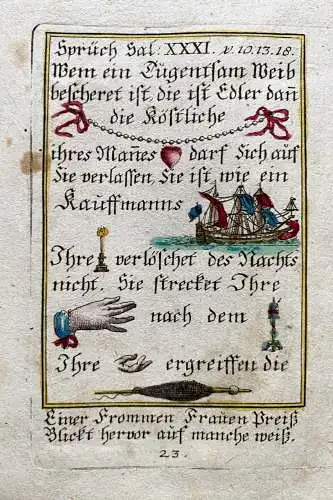 Sprüch Sal: XXXI. v. 10. 13. 18.
Wem ein Tugentsam Weib
bescheret ist, die ist Edler dañ
die Köstliche
ihres Mañes darf Sich auf
Sie verlassen, Sie ist, wie ein
Kauffmanns
Ihre verlöschet des Nachts
nicht. Sie strecket Ihre
nach dem
Ihre ergreiffen die
Einer Frommen Frauen Preiß
Blickt hervor auf manche weiß.
23.